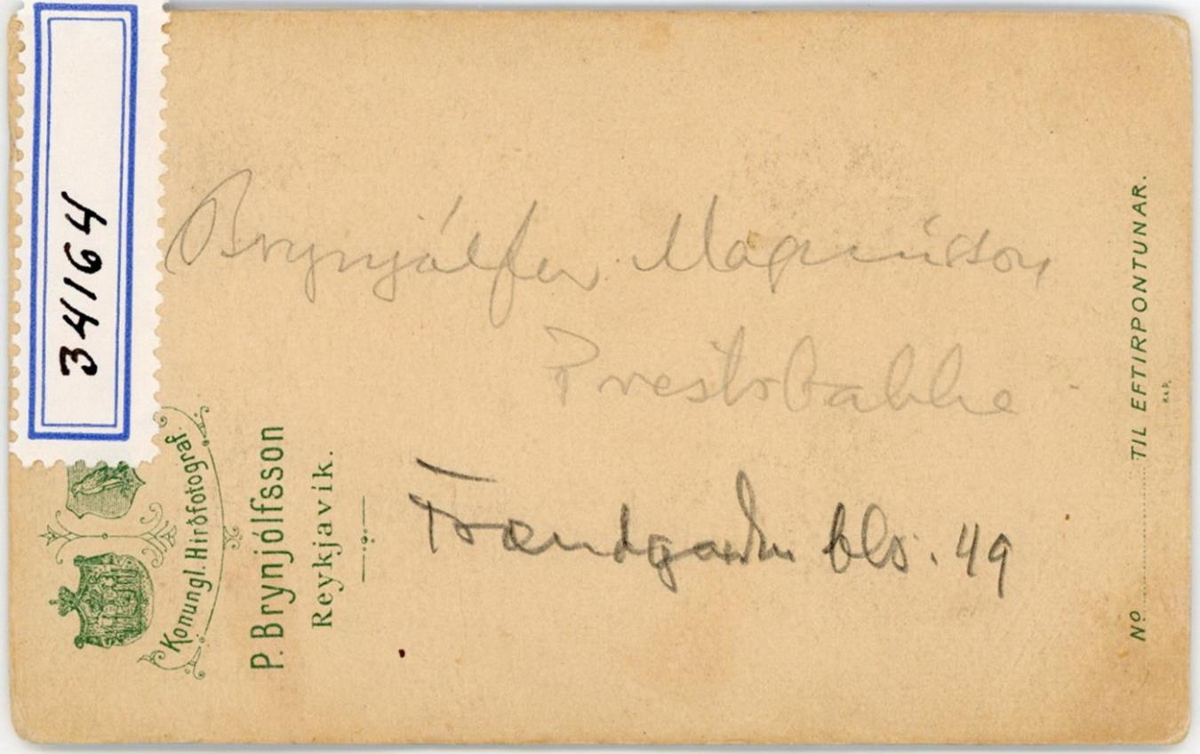 34164
Brynjólfur Magnússon
Prestsbakka
Frændgarður bls. 49
Konungl. Hirðfotograf.
P. Brynjólfsson
Reykjavik.
No TIL EFTIRPONTUNAR.